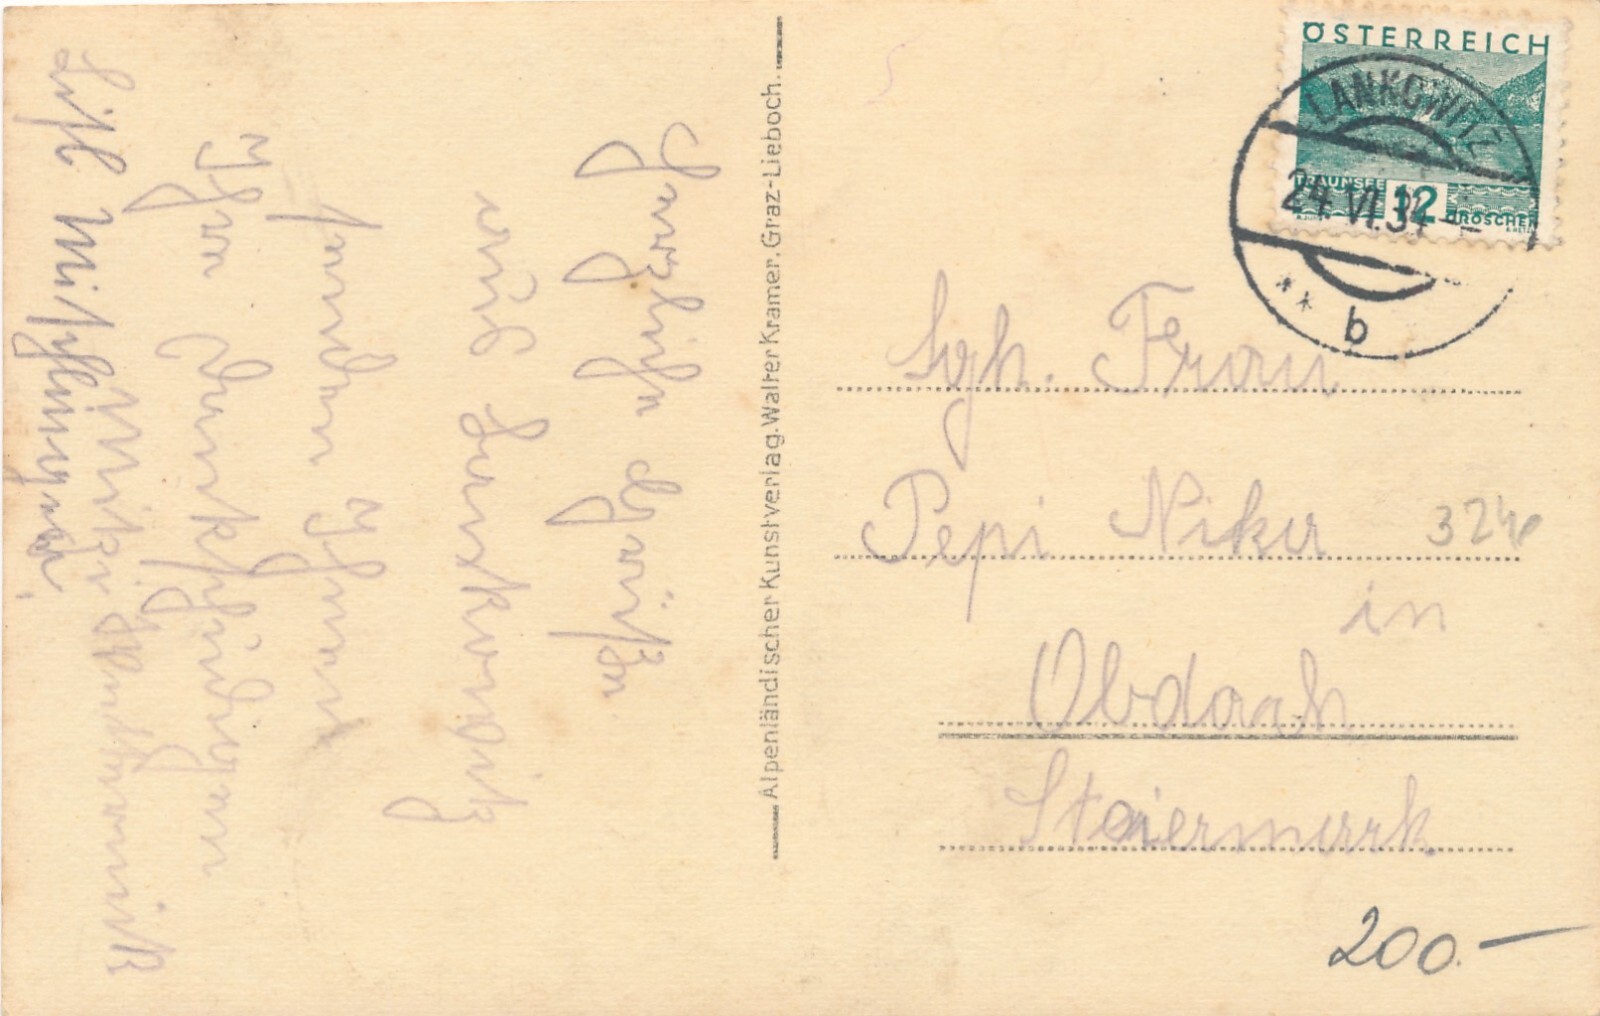 Herzliche Grüße
aus Lankowitz
senden Ihnen
Ihre dankschuldigen
Lisl
Alpenländischer Kunstverlag. Walter Kramer, Graz-Lieboch.
ÖSTERREICH
TRAUNSEE
12
GROSCHEN
LANKOWITZ
24.VI.34
b
Sgh. Frau
Pepi Niker
in
Obdach
Steiermark.
324
200.-